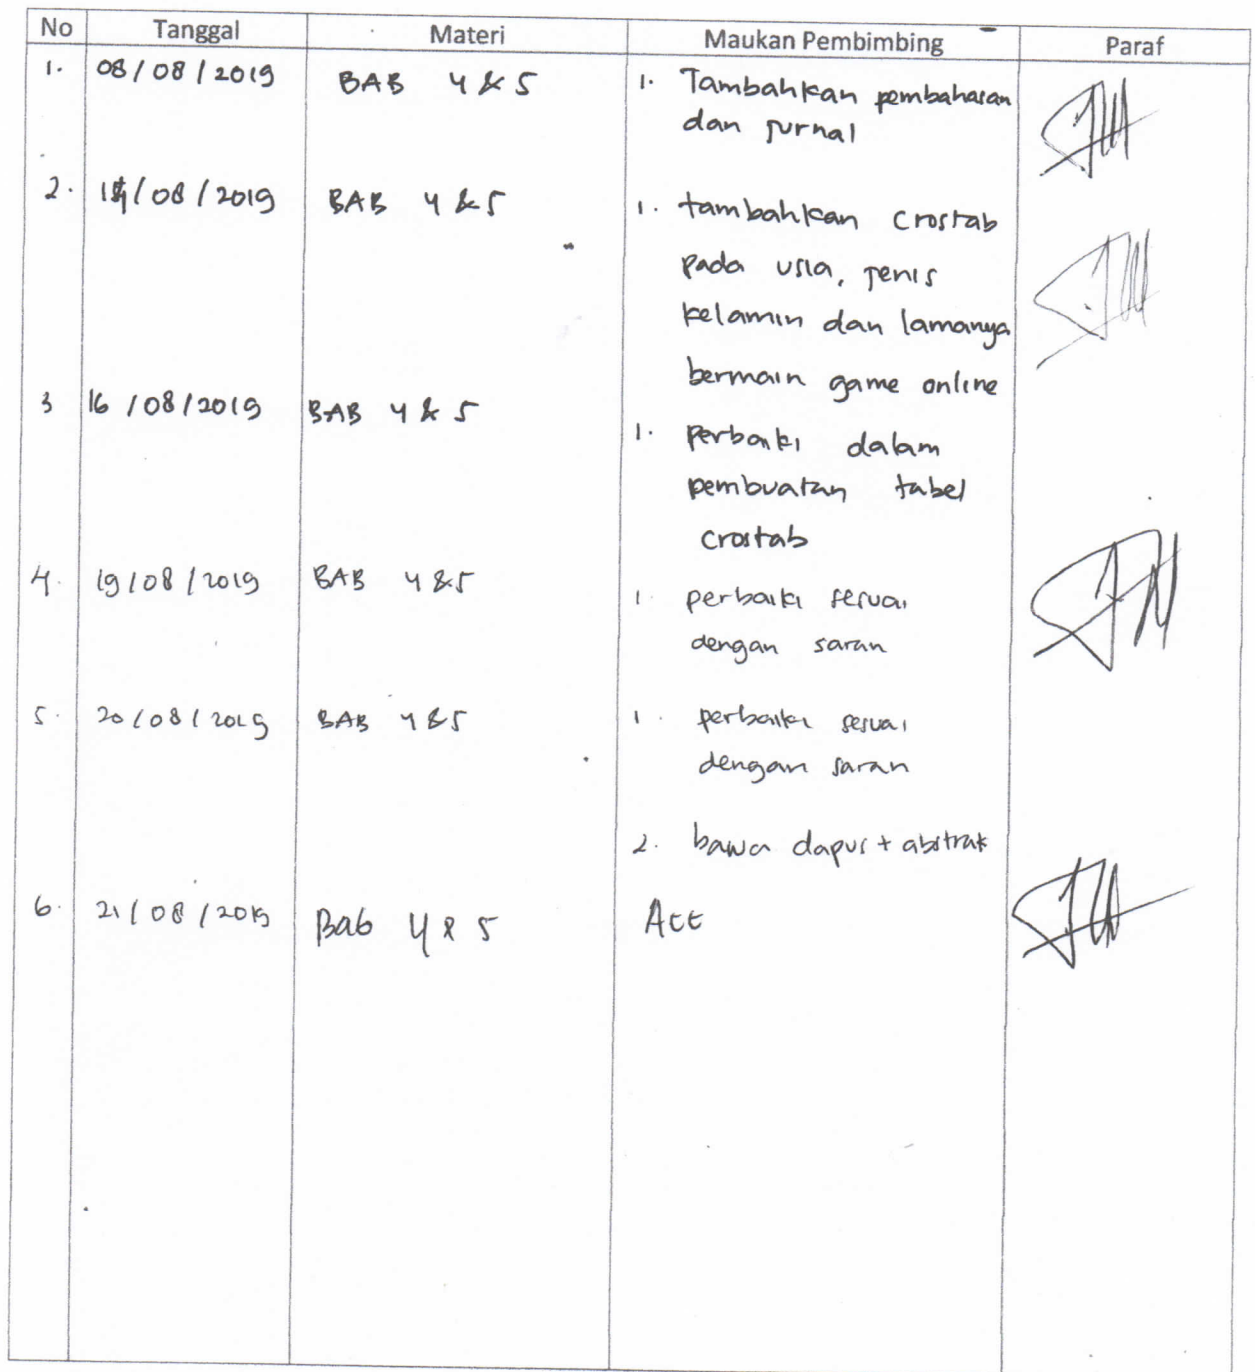 No Tanggal Materi Maukan Pembimbing Paraf
1. 08/08/2019 BAB 4 & 5 1. Tambahkan pembahasan
dan jurnal
2. 08/2019 BAB 4 & 5 1. tambahkan crostab
pada usia, jenis
kelamin dan lamanya
bermain game online
3 16/08/2019 BAB 4 & 5 1. Perbaiki dalam
pembuatan tabel
crostab
4. 19/08/2019 BAB 4 & 5 1. perbaiki sesuai
dengan saran
5. 20/08/2019 BAB 4 & 5 1. perbaiki sesuai
dengan saran
2. bawa dapus + abstrak
6. 21/08/2019 Bab 4 & 5 Acc